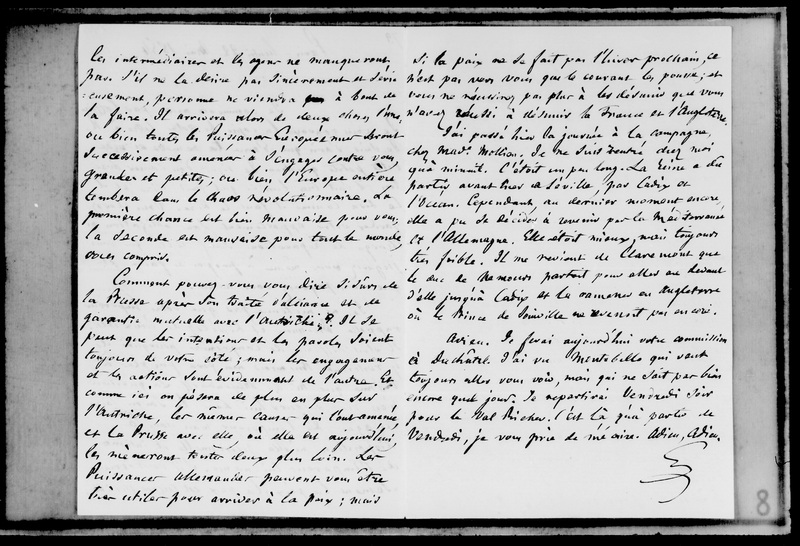 les intermédiaires et les agens ne manqueront
pas. S'il ne la désire pas sincèrement et séri-
eusement, personne ne viendra à bout de
la faire. Il arrivera alors de deux choses l'une,
ou bien toutes les Puissances Européennes seront
successivement amenées à s'engager contre vous,
grandes et petites; ou bien l'Europe entière
tombera dans le chaos révolutionnaire. La
première chance est bien mauvaise pour vous;
la seconde est mauvaise pour tout le monde,
vous compris.
Comment pouvez-vous vous dire si sûrs de
la Prusse après son traité d'alliance et de
garantie mutuelle avec l'Autriche? Il se
peut que les intentions et les paroles soient
toujours de votre côté; mais les engagemens
et les actions sont évidemment de l'autre. Et
comme ici on pèsera de plus en plus sur
l'Autriche, les mêmes causes qui l'ont amenée,
et la Prusse avec elle, où elle est aujourd'hui,
les mèneront toutes deux plus loin. Les
Puissances allemandes peuvent vous être
très utiles pour arriver à la paix; mais
si la paix ne se fait pas l'hiver prochain, ce
n'est pas vers vous que le courant les pousse; et
vous ne réussirez pas plus à les désunir que vous
n'avez réussi à désunir la France et l'Angleterre.
J'ai passé hier la journée à la campagne,
chez Mad. Mollien. Je ne suis rentré chez moi
qu'à minuit. C'étoit un peu long. La Reine a dû
partir avant hier de Séville, par Cadix et
l'Océan. Cependant, au dernier moment encore,
elle a pu se décider à revenir par la Méditerranée
et l'Allemagne. Elle étoit mieux, mais toujours
très foible. Il me revient de Claremont que
le duc de Nemours partoit pour aller au devant
d'elle jusqu'à Cadix et la ramener en Angleterre
où le Prince de Joinville ne revenoit pas encore.
Adieu. Je ferai aujourd'hui votre commission
à Duchâtel. J'ai vu Montebello qui veut
toujours aller vous voir, mais qui ne sait pas bien
encore quel jour. Je repartirai Vendredi soir
pour le Val Richer. C'est là qu'à partir de
Vendredi, je vous prie de m'écrire. Adieu, Adieu.
8